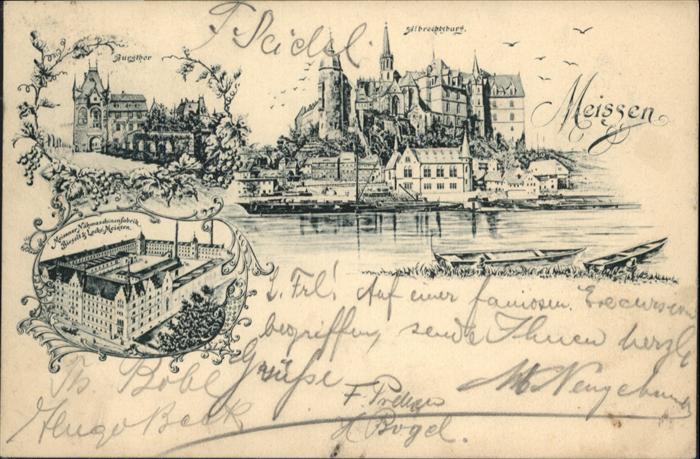 F Seidel.
Albrechtsburg.
Burgthor
Meissen
Meissner Nähmaschinenfabrik
Biesolt & Locke Meissen.
L. Frl! Auf einer famosen Excursion
begriffen, sende Ihnen herzl
Grüße
Th. Bobe
Hugo Beck
H Bogel.